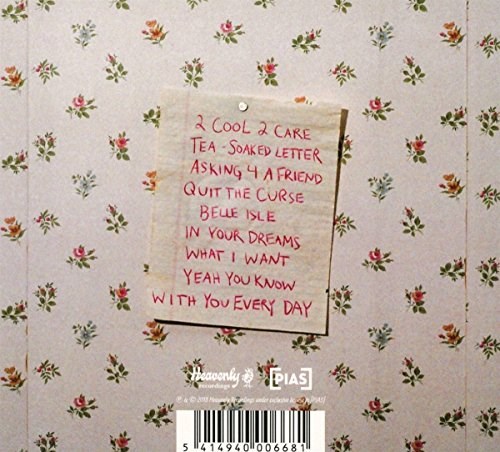 2 COOL 2 CARE
TEA-SOAKED LETTER
ASKING 4 A FRIEND
QUIT THE CURSE
BELLE ISLE
IN YOUR DREAMS
WHAT I WANT
YEAH YOU KNOW
WITH YOU EVERY DAY
Heavenly [PIAS]
Recordings
℗ & © 2018 Heavenly Recordings under exclusive to [PIAS]
5 414940 006681